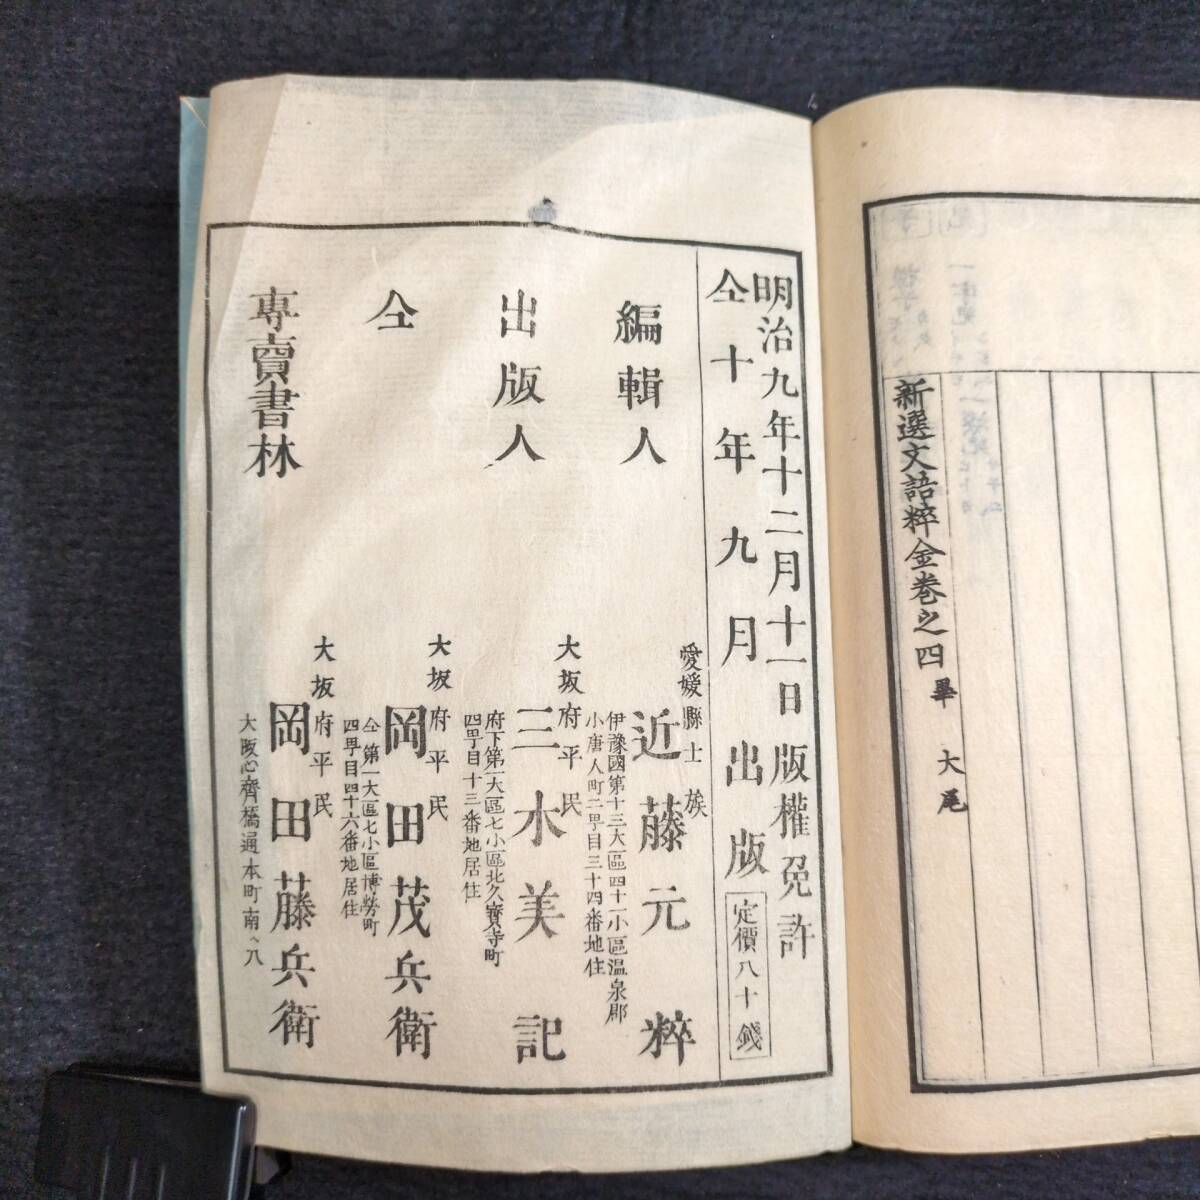 新選文語粹金巻之四畢 大尾
明治九年十二月十一日版權免許
仝十年九月出版 定價八十錢
編輯人 愛媛縣士族 近藤元粹
伊豫國第十三大區四十一小區温泉郡
小唐人町二丁目三十四番地住
出版人 大坂府平民 三木美記
府下第一大區七小區北久寶寺町
四丁目十三番地居住
仝 大坂府平民 岡田茂兵衛
仝第一大區七小區博勞町
四丁目四十六番地居住
專賣書林 大坂府平民 岡田藤兵衛
大阪心齊橋通本町南ヘ入